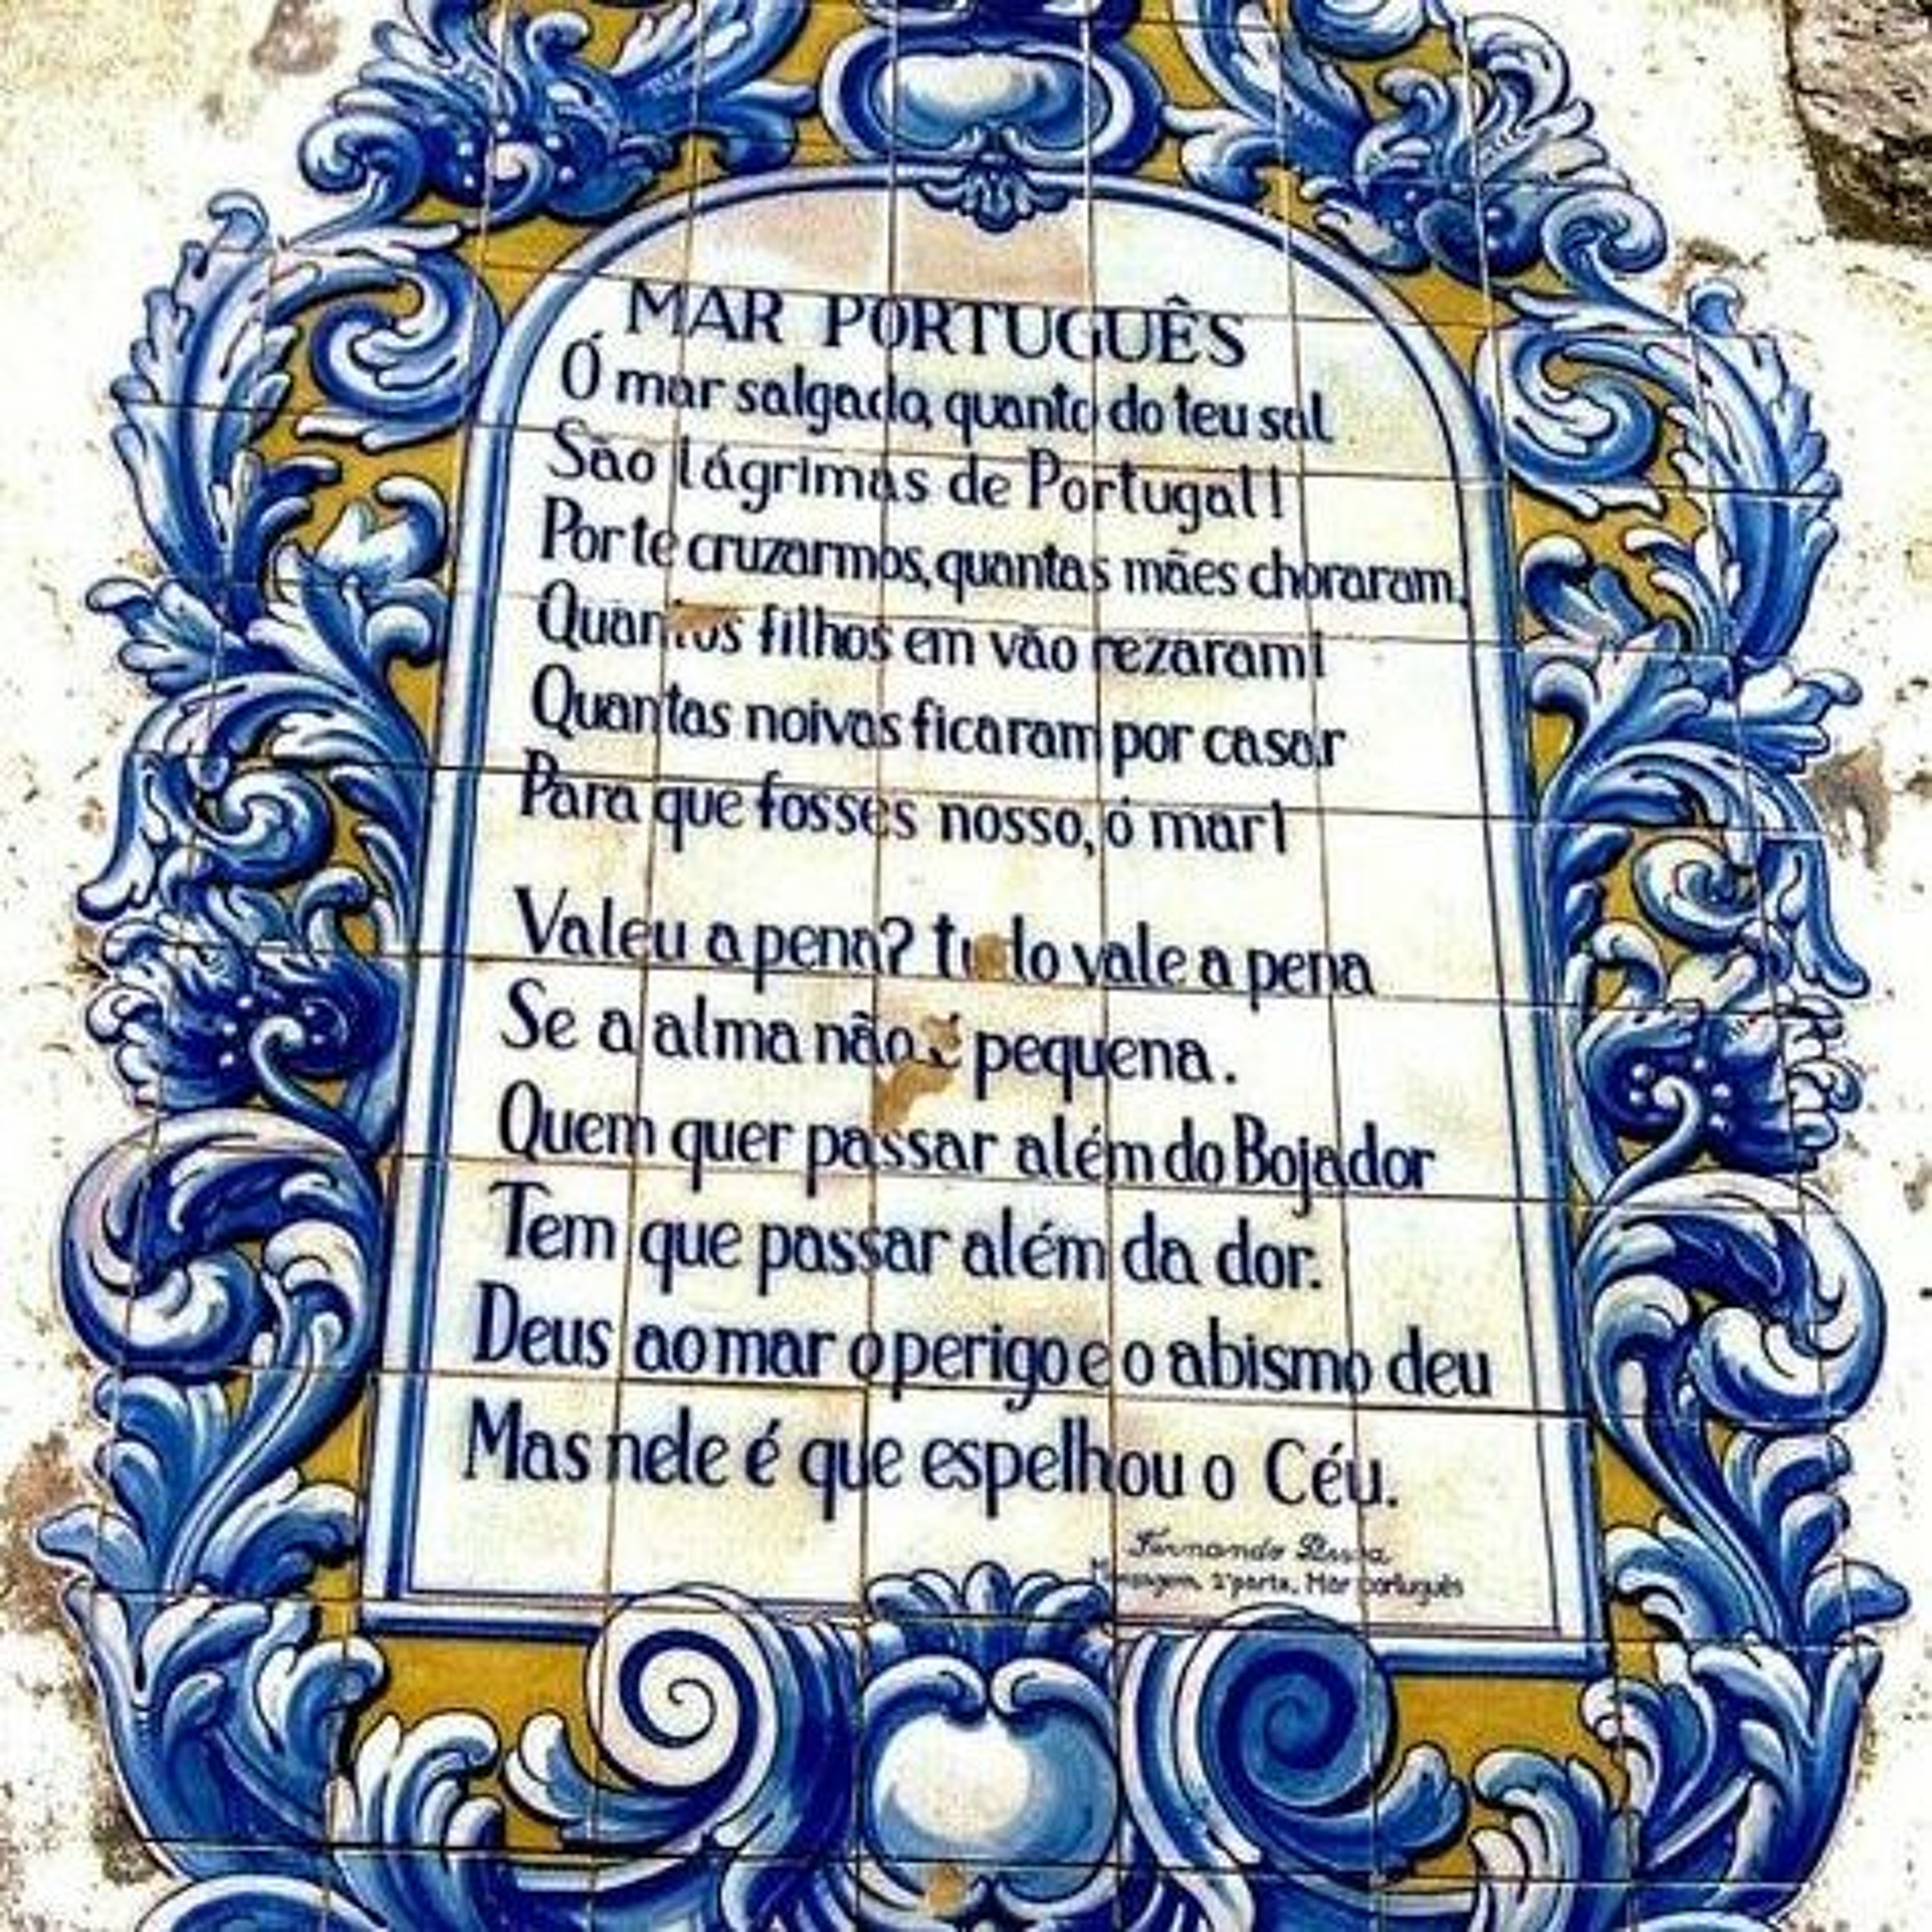 MAR PORTUGUÊS
Ó mar salgado, quanto do teu sal
São lágrimas de Portugal!
Por te cruzarmos, quantas mães choraram,
Quantos filhos em vão rezaram!
Quantas noivas ficaram por casar
Para que fosses nosso, ó mar!
Valeu a pena? tudo vale a pena
Se a alma não é pequena.
Quem quer passar além do Bojador
Tem que passar além da dor.
Deus ao mar o perigo e o abismo deu
Mas nele é que espelhou o Céu.
Fernando Pessoa
Mensagem, 2ª parte, Mar português